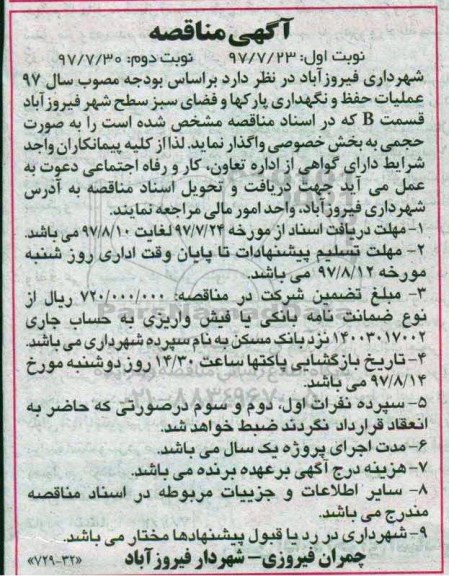 آگهی مناقصه
نوبت اول: ۹۷/۷/۲۳ نوبت دوم: ۹۷/۷/۳۰
شهرداری فیروزآباد در نظر دارد براساس بودجه مصوب سال ۹۷
عملیات حفظ و نگهداری پارکها و فضای سبز سطح شهر فیروزآباد
قسمت B که در اسناد مناقصه مشخص شده است را به صورت
حجمی به بخش خصوصی واگذار نماید. لذا از کلیه پیمانکاران واجد
شرایط دارای گواهی از اداره تعاون، کار و رفاه اجتماعی دعوت به
عمل می آید جهت دریافت و تحویل اسناد مناقصه به آدرس
شهرداری فیروزآباد، واحد امور مالی مراجعه نمایند.
۱- مهلت دریافت اسناد از مورخه ۹۷/۷/۲۴ لغایت ۹۷/۸/۱۰ می باشد.
۲- مهلت تسلیم پیشنهادات تا پایان وقت اداری روز شنبه
مورخه ۹۷/۸/۱۲ می باشد.
۳- مبلغ تضمین شرکت در مناقصه: ۷۲۰/۰۰۰/۰۰۰ ریال از
نوع ضمانت نامه بانکی یا فیش واریزی به حساب جاری
۱۴۰۰۳۰۱۷۰۰۲ نزد بانک مسکن به نام سپرده شهرداری می باشد.
۴- تاریخ بازگشایی پاکتها ساعت ۱۴/۳۰ روز دوشنبه مورخ
۹۷/۸/۱۴ می باشد.
۵- سپرده نفرات اول، دوم و سوم درصورتی که حاضر به
انعقاد قرارداد نگردند ضبط خواهد شد.
۶- مدت اجرای پروژه یک سال می باشد.
۷- هزینه درج آگهی برعهده برنده می باشد.
۸- سایر اطلاعات و جزییات مربوطه در اسناد مناقصه
مندرج می باشد.
۹- شهرداری در رد یا قبول پیشنهادها مختار می باشد.
چمران فیروزی- شهردار فیروزآباد «۷۲۹-۳۲»